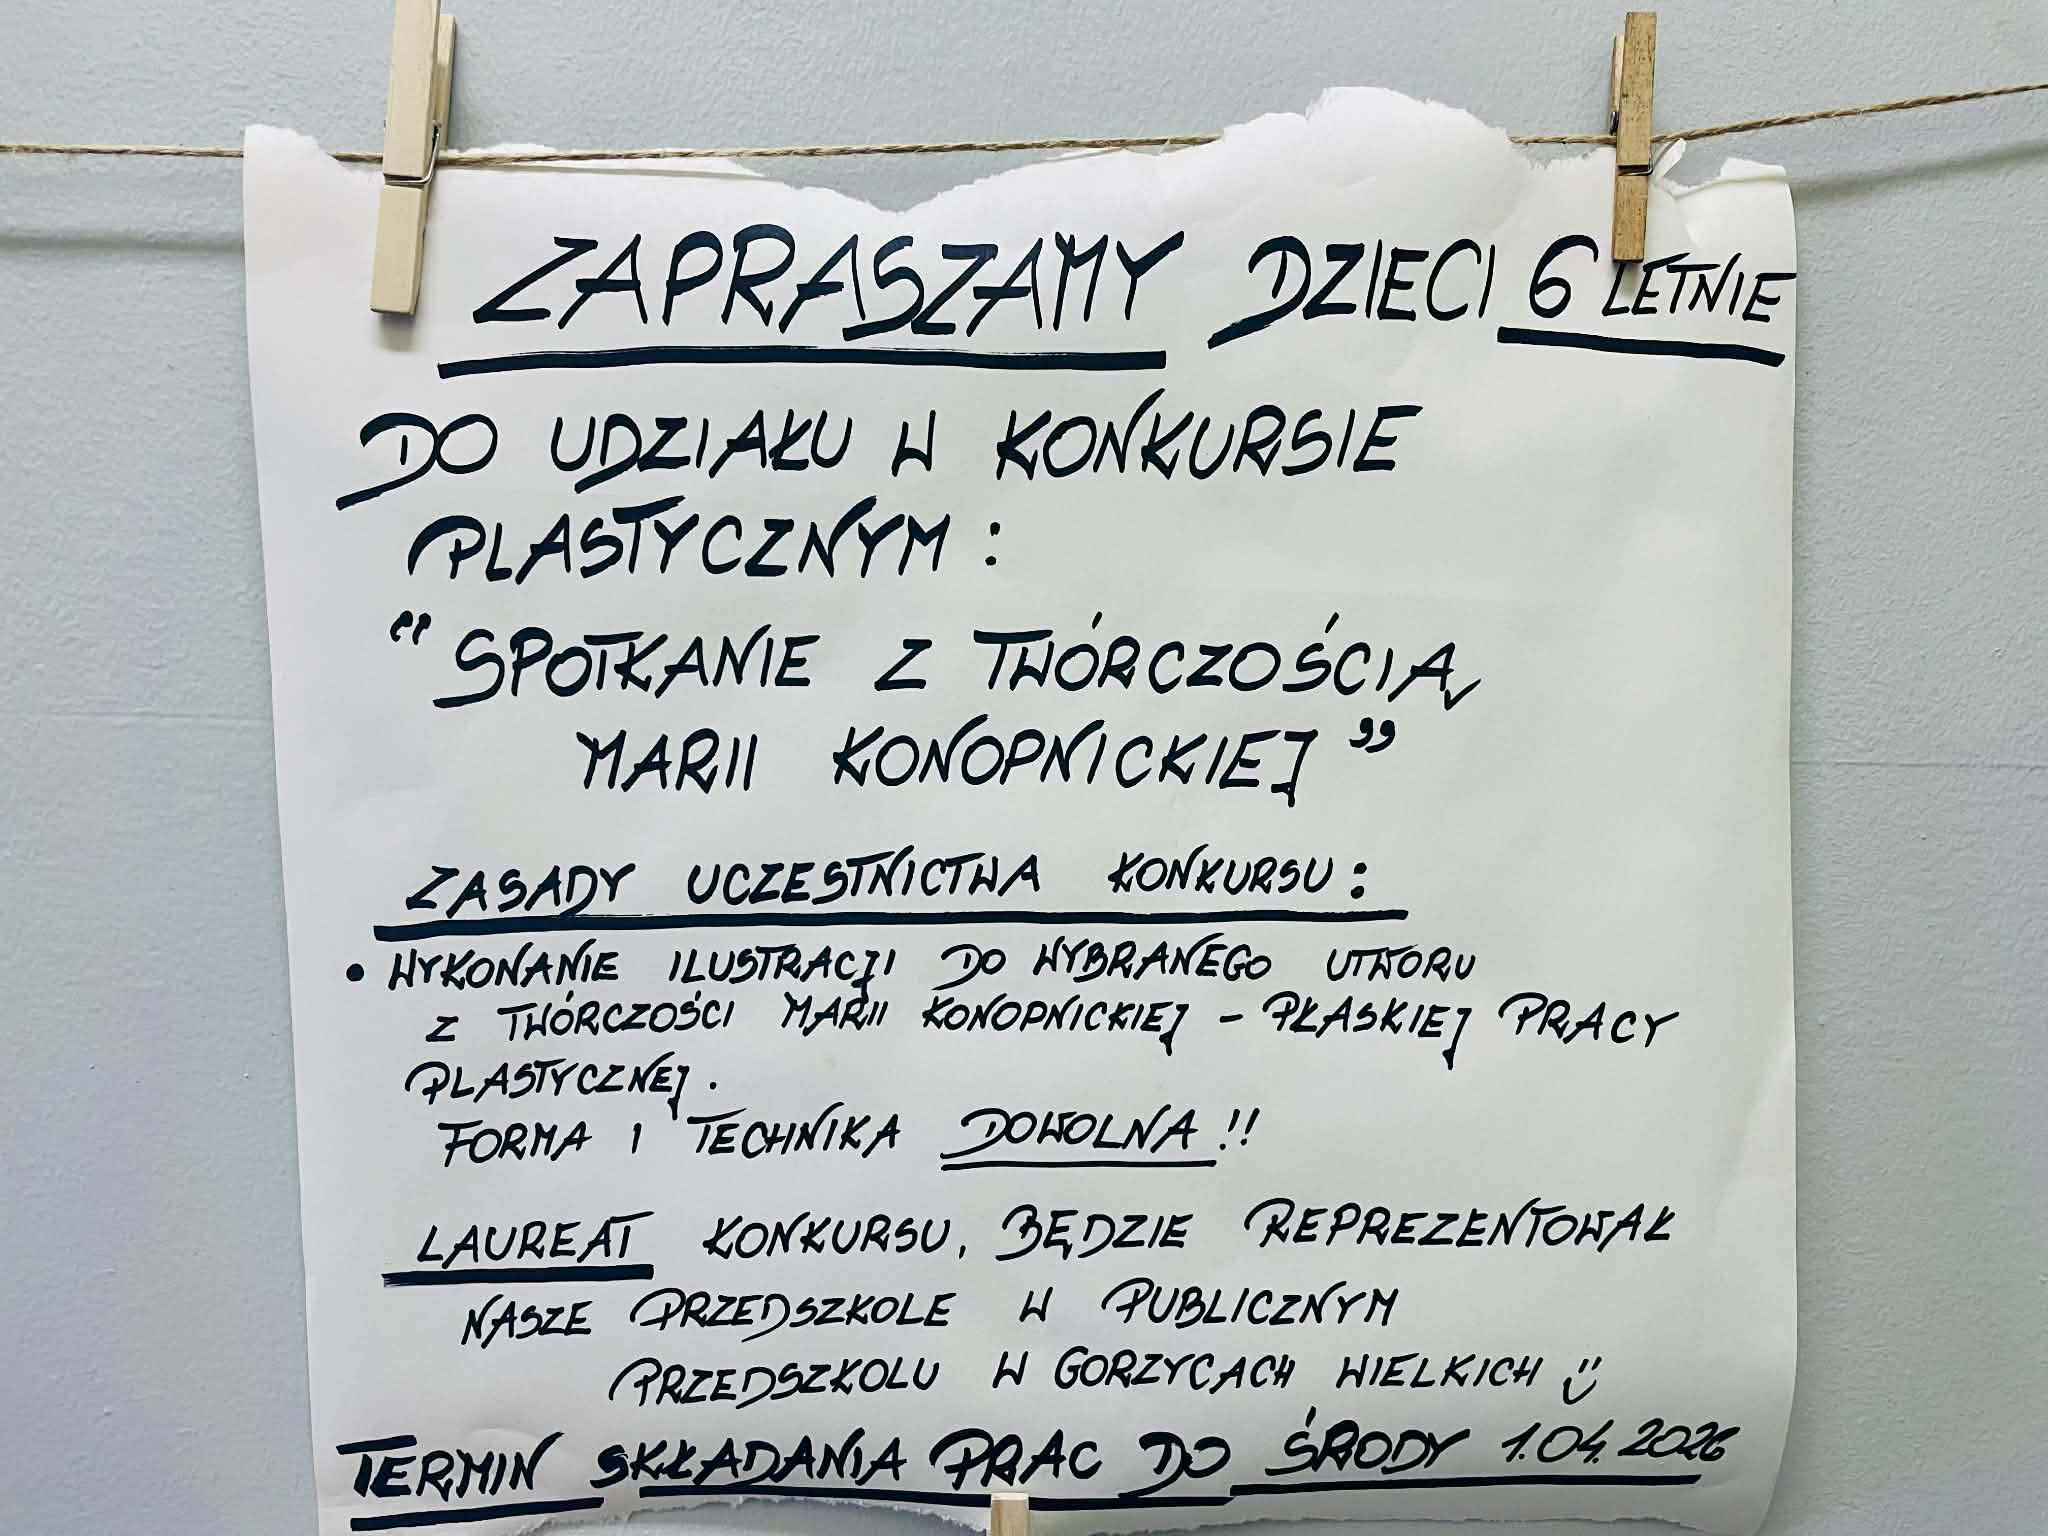 ZAPRASZAMY DZIECI 6 LETNIE
DO UDZIAŁU W KONKURSIE
PLASTYCZNYM :
“SPOTKANIE Z TWÓRCZOŚCIĄ
MARII KONOPNICKIEJ”
ZASADY UCZESTNICTWA KONKURSU :
• WYKONANIE ILUSTRACJI DO WYBRANEGO UTWORU
Z TWÓRCZOŚCI MARII KONOPNICKIEJ – PŁASKIEJ PRACY
PLASTYCZNEJ.
FORMA I TECHNIKA DOWOLNA !!
LAUREAT KONKURSU, BĘDZIE REPREZENTOWAŁ
NASZE PRZEDSZKOLE W PUBLICZNYM
PRZEDSZKOLU W GORZYCACH WIELKICH ☺
TERMIN SKŁADANIA PRAC DO ŚRODY 1.04.2026